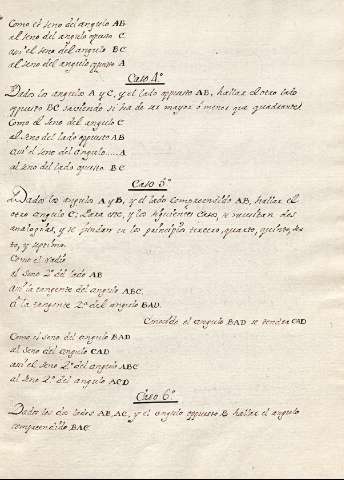 Como el seno del angulo AB
al seno del angulo opuesto C
asi el seno del angulo BC
al seno del angulo opuesto A
Caso 4º
Dados los angulos A y C, y el lado oppuesto AB, hallar el otro lado
oppuesto BC saviendo si ha de ser mayor ó menor que quadrante
Como el seno del angulo C
al seno del lado oppuesto AB
asi el seno del angulo.....A
al seno del lado opuesto BC
Caso 5º
Dados los angulos A y B, y el lado comprendido AB, hallar el
otro angulo C; para este, y los siguientes Casos, se necesitan dos
analogias, y se fundan en los principios tercero, quarto, quinto, sex
to, y septimo.
Como el radio
al seno 2º del lado AB
Asi la tangente del angulo ABC,
á la tangente 2ª del angulo BAD.
Conocido el angulo BAD se tendra CAD
Como el seno del angulo BAD
al seno del angulo CAD
asi el seno 2º del angulo ABC
al seno 2º del angulo ACD
Caso 6º
Dados los dos lados AB, AC, y el angulo oppuesto B hallar el angulo
comprendido BAC